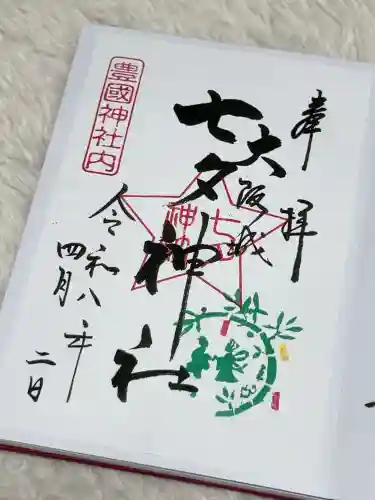 奉拝
大阪城
七夕神社
七夕神社
令和八年
四月二日
豊國神社内